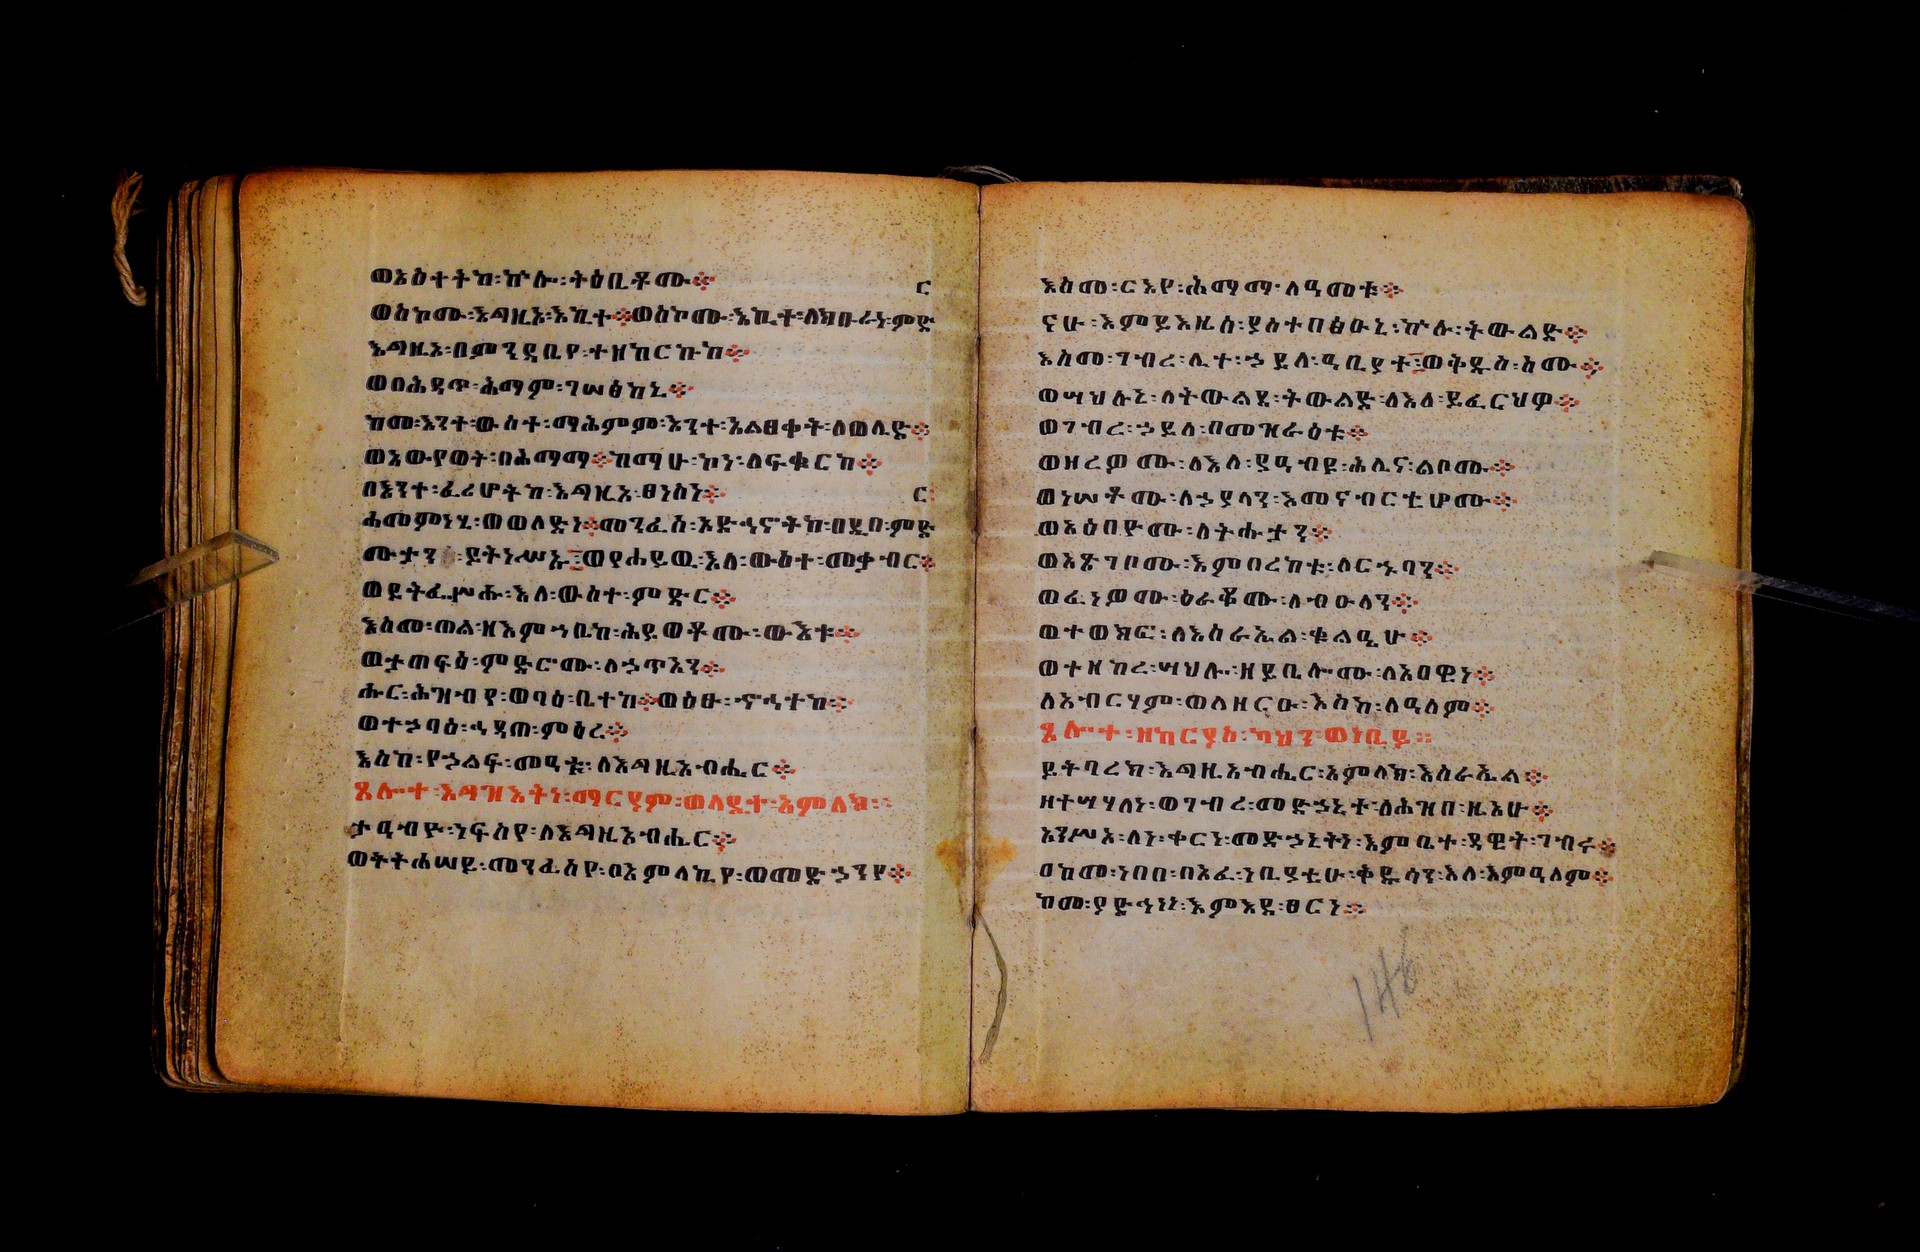 ወአስተትከ፡ኵሎ፡ትዕቢቶሙ፨
ር
ወስኮሙ፡እግዚአ፡እኪተ፨ወስኮሙ፡እኪተ፡ለክቡራነ፡ምድ
እግዚአ፡በምንዳቤየ፡ተዘከርኩከ፨
ወበሕዳጥ፡ሕማም፡ገሠፅከኒ፨
ከመ፡እንተ፡ውስተ፡ማሕምም፡እንተ፡አልፀቀት፡ለወሊድ፨
ወአውየወት፡በሕማማ፨ከማሁ፡ኮነ፡ለፍቁርከ፨
በእንተ፡ፈሪሆትከ፡እግዚአ፡ፀነስነ፨
ር
ሐመምነሂ፡ወወለድነ፨መንፈስ፡አድኅኖትከ፡በዲበ፡ምድ
ሙታን፡ይትነሥኡ፨ወየሐይዉ፡እለ፡ውስተ፡መቃብር፨
ወይትፌሥሑ፡እለ፡ውስተ፡ምድር፨
እስመ፡ጠል፡ዘእምኀቤከ፡ሕይወቶሙ፡ውእቱ፨
ወታጠፍዕ፡ምድሮሙ፡ለኃጥአን፨
ሑር፡ሕዝብየ፡ወባዕ፡ቤተከ፨ወዕፁ፡ኆኅተከ፨
ወተኃባዕ፡ኅዳጠ፡ምዕረ፨
እስከ፡የኃልፍ፡መዓቱ፡ለእግዚአብሔር፨
ጸሎተ፡እግዝእትነ፡ማርያም፡ወላዲተ፡አምላክ፡፡
ታዓብዮ፡ነፍስየ፡ለእግዚአብሔር፨
ወትትሐሠይ፡መንፈስየ፡በአምላኪየ፡ወመድኃንየ፨
እስመ፡ርእየ፡ሕማማ፡ለዓመቱ፨
ናሁ፡እምይእዜሰ፡ያስተበፅዑኒ፡ኵሉ፡ትውልድ፨
እስመ፡ገብረ፡ሊተ፡ኃይለ፡ዓቢያተ፨ወቅዱስ፡ስሙ፨
ወሣህሉኒ፡ለትውልደ፡ትውልድ፡ለእለ፡ይፈርህዎ፨
ወገብረ፡ኃይለ፡በመዝራዕቱ፨
ወዘረዎሙ፡ለእለ፡ያዓብዩ፡ሕሊና፡ልቦሙ፨
ወነሠቶሙ፡ለኃያላን፡እመናብርቲሆሙ፨
ወአዕበዮሙ፡ለትሑታን፨
ወአጽገቦሙ፡እምበረከቱ፡ለርኁባን፨
ወፈነዎሙ፡ዕራቆሙ፡ለብዑላን፨
ወተወክፎ፡ለእስራኤል፡ቁልዔሁ፨
ወተዘከረ፡ሣህሉ፡ዘይቤሎሙ፡ለአበዊነ፨
ለአብርሃም፡ወለዘርዑ፡እስከ፡ለዓለም፨
ጸሎተ፡ዘከርያስ፡ካህን፡ወነቢይ፡፡
ይትባረክ፡እግዚአብሔር፡አምላክ፡እስራኤል፨
ዘተሣሃለነ፡ወገብረ፡መድኃኒተ፡ለሕዝበ፡ዚአሁ፨
አንሥአ፡ለነ፡ቀርነ፡መድኃኒትነ፡እምቤተ፡ዳዊት፡ገብሩ፨
በከመ፡ነበበ፡በአፈ፡ነቢያቲሁ፡ቅዱሳን፡እለ፡እምዓለም፨
ከመ፡ያድኅነነ፡እምእደ፡ፀርነ፨
146